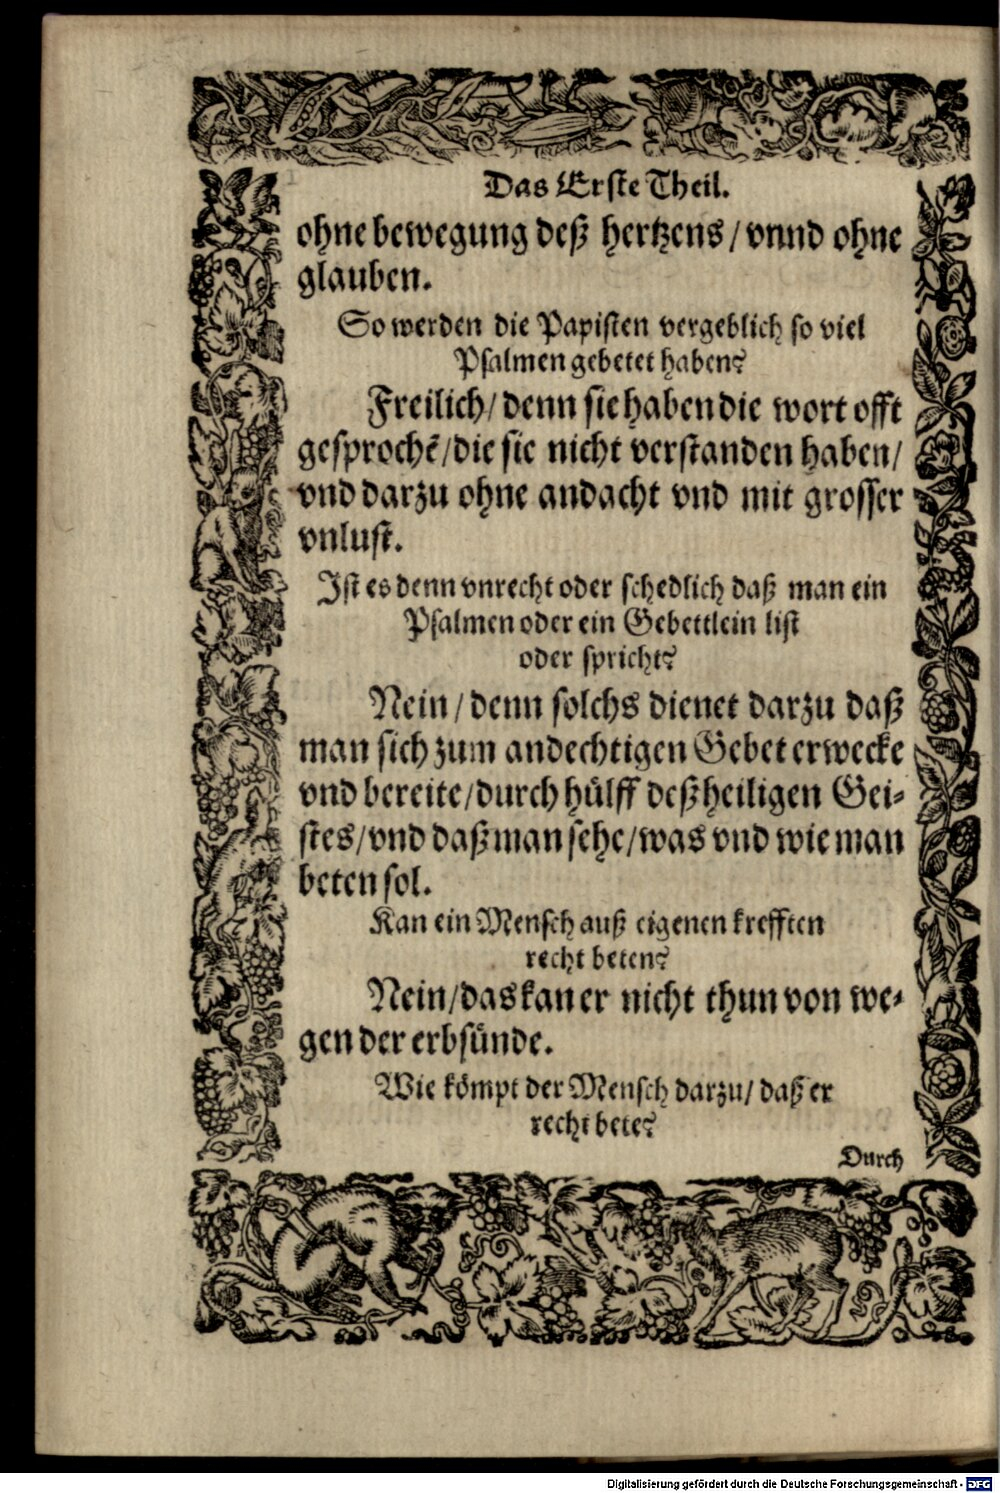 Das Erste Theil.
ohne bewegung deß hertzens / vnnd ohne
glauben.
So werden die Papisten vergeblich so viel
Psalmen gebetet haben?
Freilich / denn sie haben die wort offt
gesprochẽ / die sie nicht verstanden haben /
vnd darzu ohne andacht vnd mit grosser
vnlust.
Ist es denn vnrecht oder schedlich daß man ein
Psalmen oder ein Gebettlein list
oder spricht?
Nein / denn solchs dienet darzu daß
man sich zum andechtigen Gebet erwecke
vnd bereite / durch hülff deß heiligen Gei-
stes / vnd daß man sehe / was vnd wie man
beten sol.
Kan ein Mensch auß eigenen krefften
recht beten?
Nein / das kan er nicht thun von we-
gen der erbsünde.
Wie kömpt der Mensch darzu / daß er
recht bete?
Durch
Digitalisierung gefördert durch die Deutsche Forschungsgemeinschaft - DFG